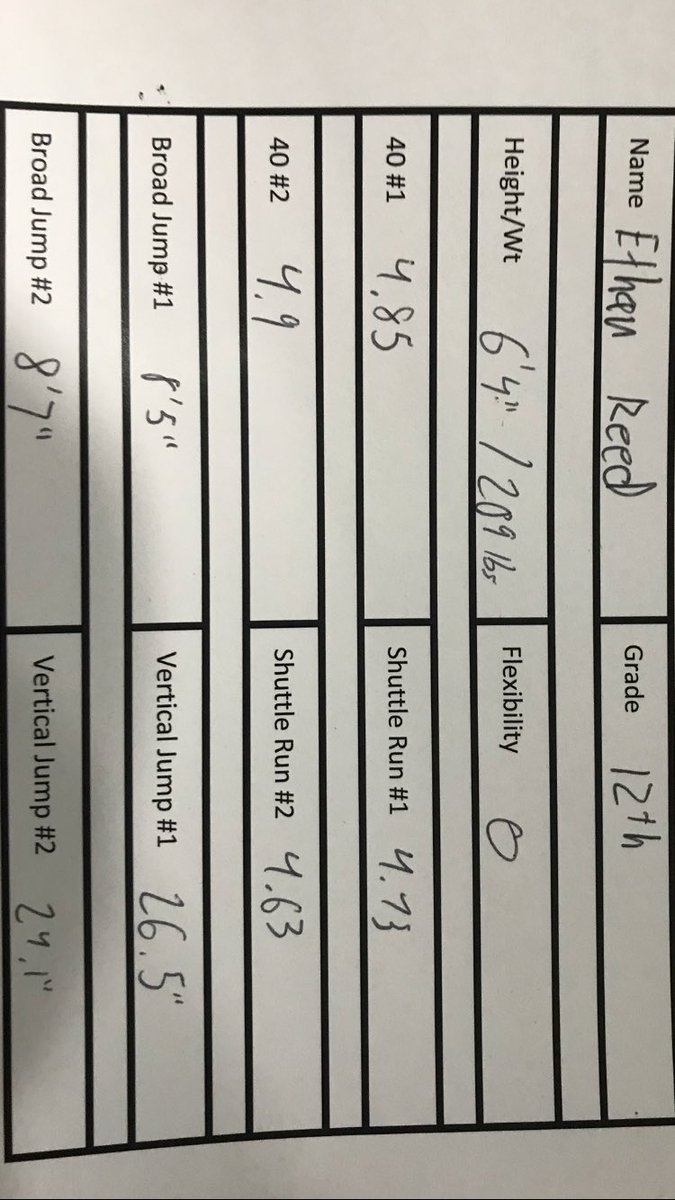 Name Ethan Reed Grade 12th
Height/Wt 6'4" / 209 lbs Flexibility 0
40 #1 4.85 Shuttle Run #1 4.73
40 #2 4.9 Shuttle Run #2 4.63
Broad Jump #1 8'5" Vertical Jump #1 26.5"
Broad Jump #2 8'7" Vertical Jump #2 24.1"